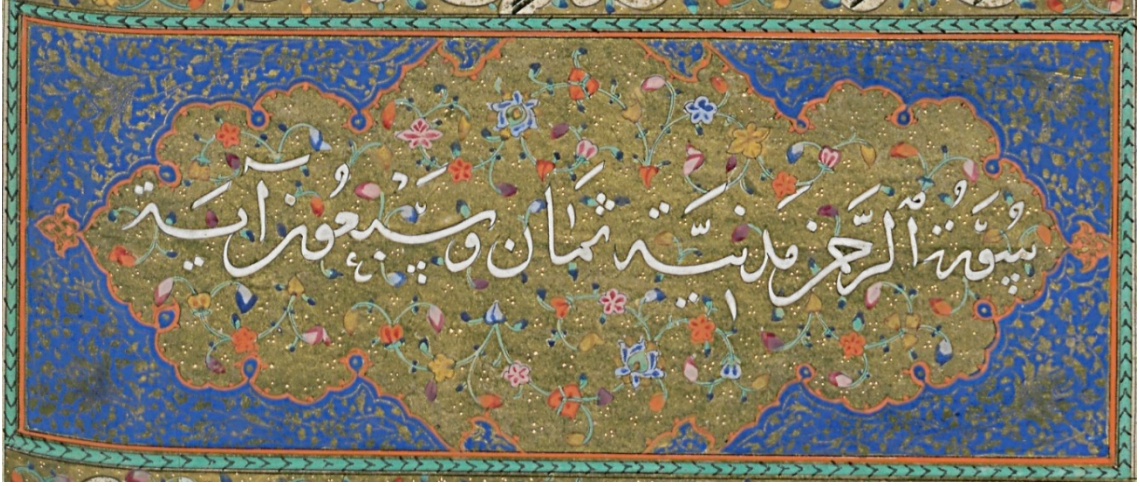 سُورَةُ ٱلرَّحْمٰن مَدَنِيَّة ثَمَان وَسَبْعُون آيَة